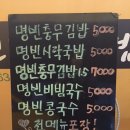 명빈충무김밥 5000
명빈시락국밥 5000
명빈충무김밥1.5 7000
명빈비빔국수 5000
명빈콩국수 5000
전메뉴포장!